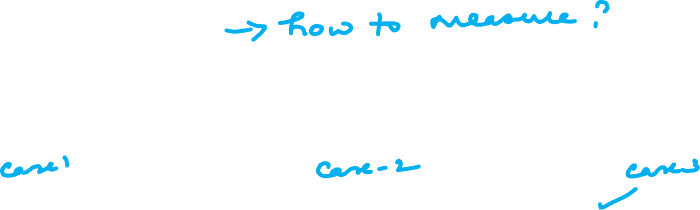 → how to measure?
case 1 case-2 case 3